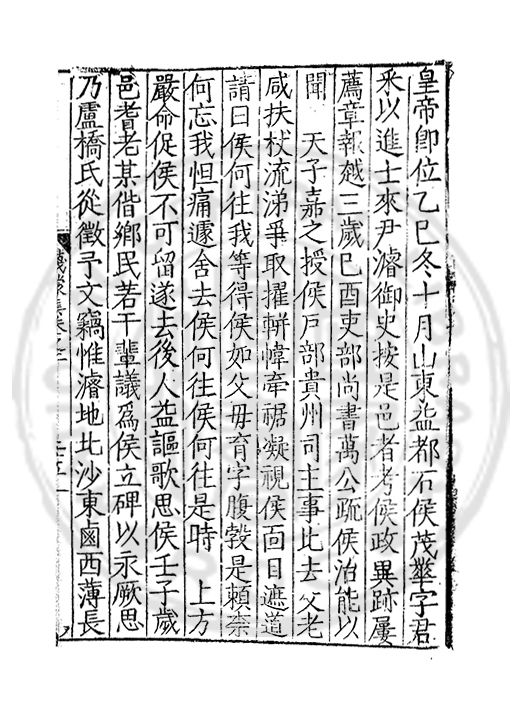 皇帝卽位乙巳冬十月山東益都石侯茂華字君
釆以進士來尹濬御史按是邑者考侯政異跡屢
薦章報越三歲巳酉吏部尚書萬公䟽侯治能以
聞　天子嘉之授侯戶部貴州司主事比去父老
咸扶杖流涕爭取擢軿幃牽裾凝視侯面目遮道
請曰侯何往我等得侯如父毋育字腹㝅是賴柰
何忘我怛痛遽舍去侯何往侯何往是時　上方
嚴命促侯不可留遂去後人益謳歌思侯壬子歲
邑耆老某偕鄉民若干輩議爲侯立碑以永厥思
乃盧橋氏從徵予文竊惟濬地比沙東鹵西薄長